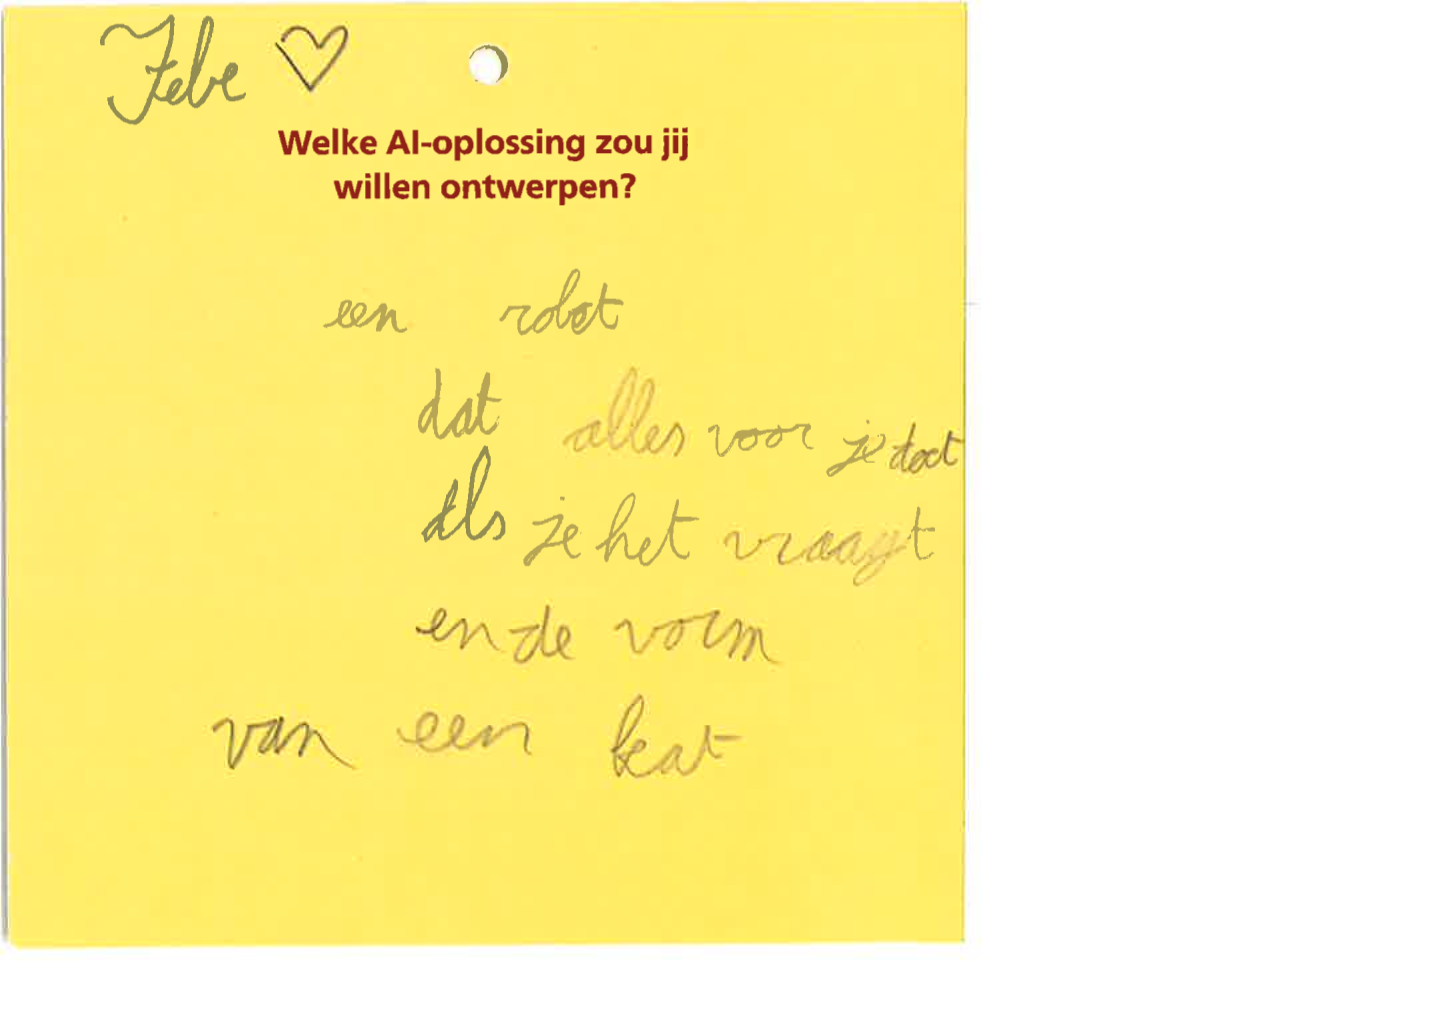 Febe ♡
Welke AI-oplossing zou jij
willen ontwerpen?
een robot
dat alles voor je doet
als je het vraagt
en de vorm
van een kat